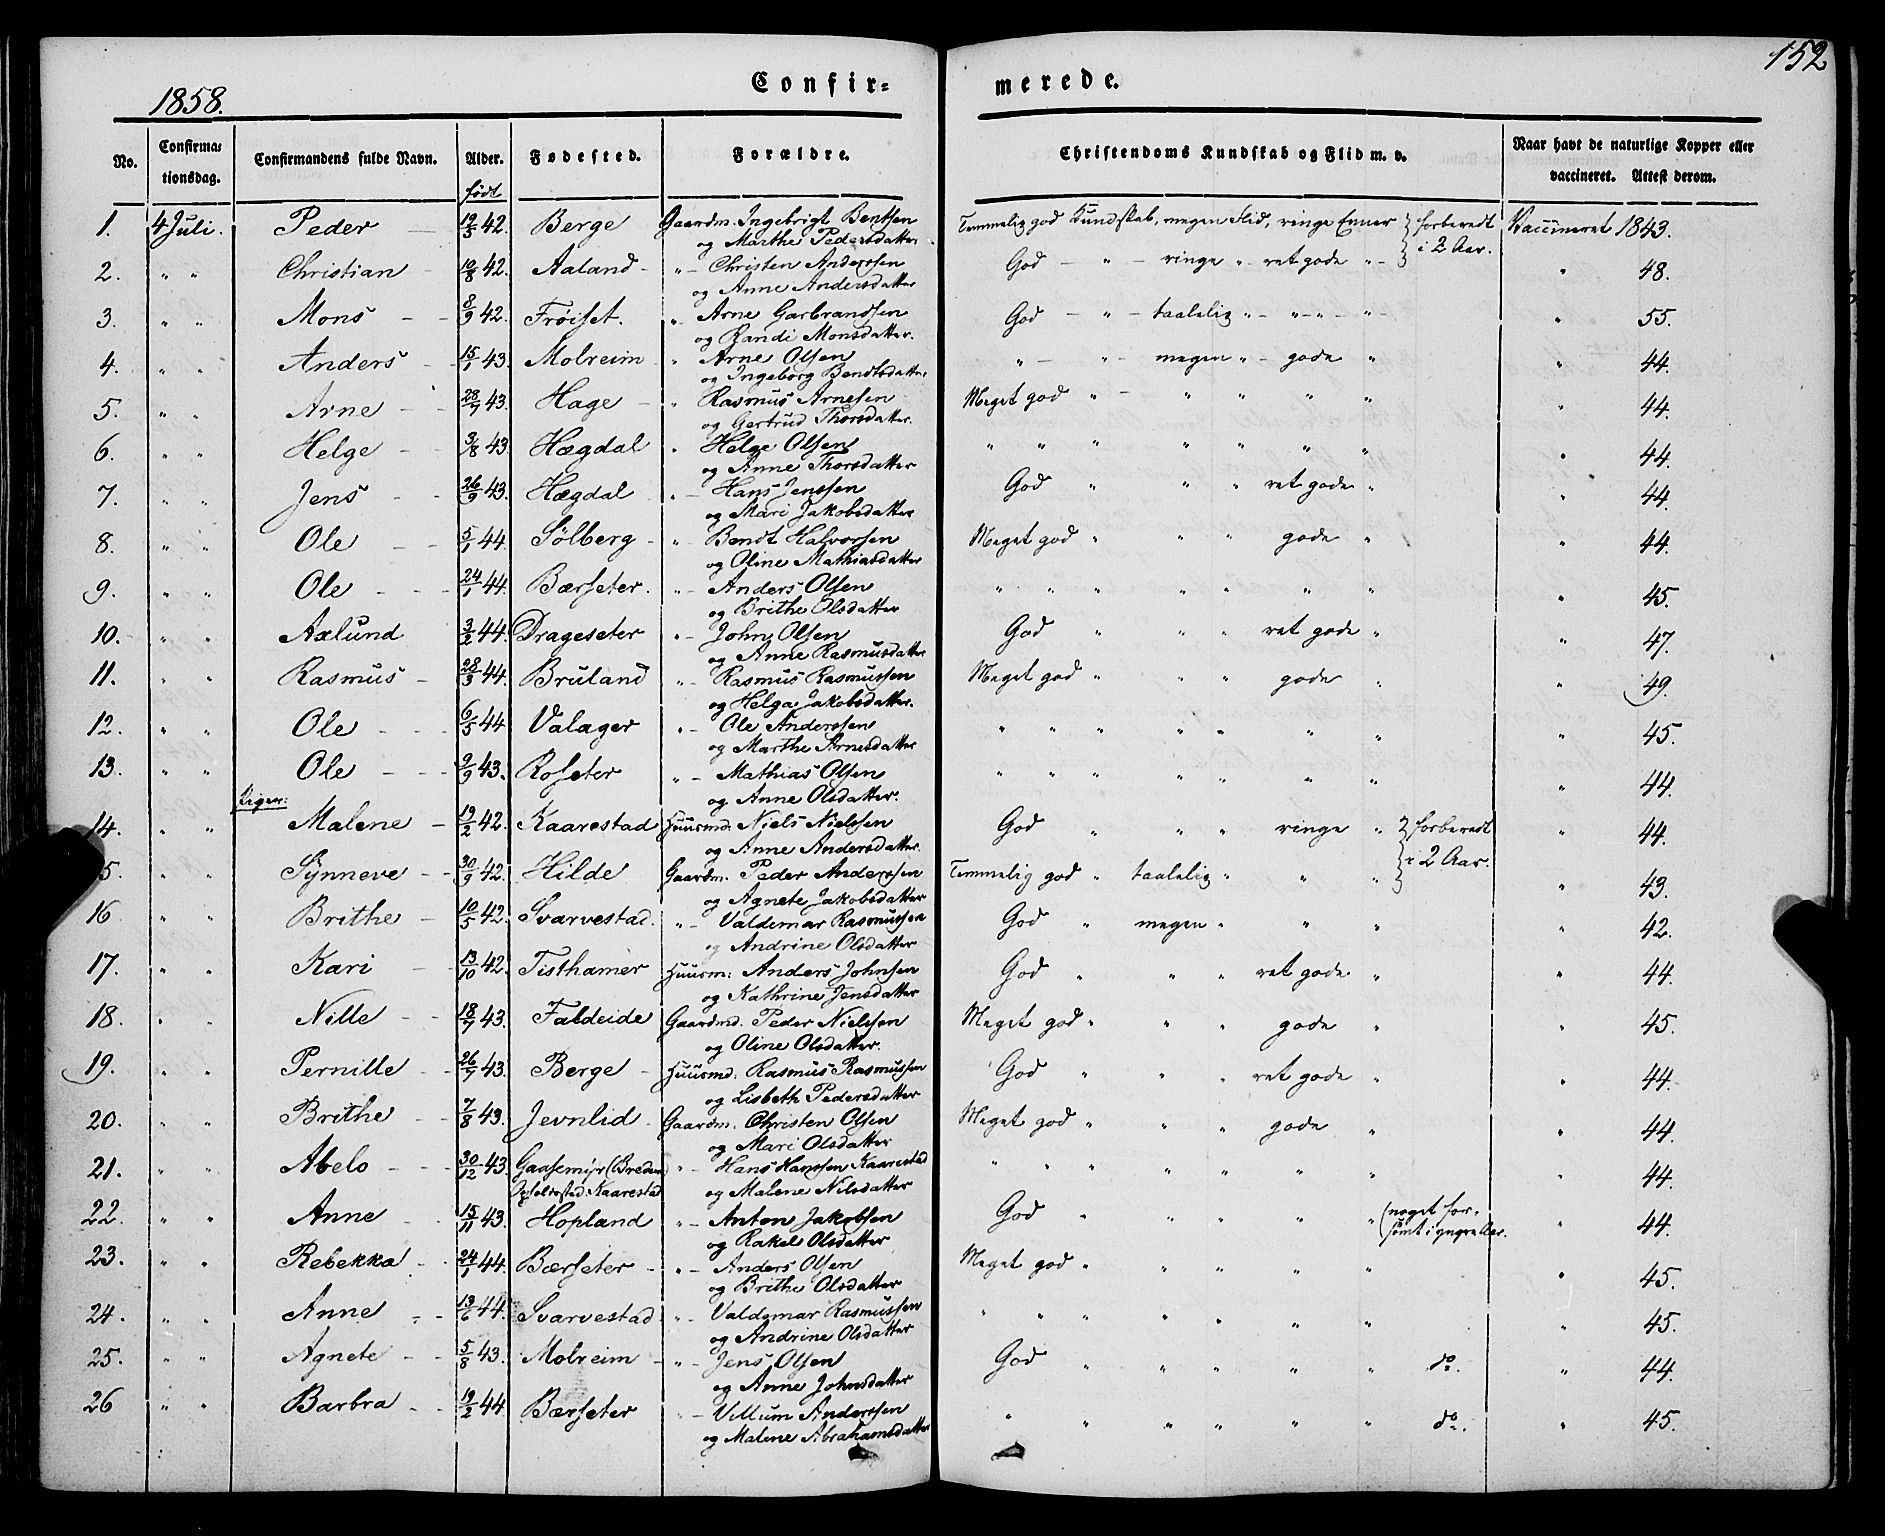 152
1858.
Confir-
merede.
No. Confirmationsdag. Confirmandens fulde Navn. Alder. Fødested. Forældre. Christendoms Kundskab og Flid m. v. Naar havt de naturlige Kopper eller vaccineret. Attest derom.
født
1. 4 Juli. Peder — 12/3 42. Berge Gaardm. Ingebrigt Bentsen Temmelig god Kundskab, megen Flid, ringe Evner } forberedt Vaccineret 1843.
og Marthe Pedersdatter i 2 Aar.
2. " " Christian - 10/8 42. Aaland - " - Christen Anderssen God - " - ringe " ret gode " - " 48.
og Anne Andersdatter
3. " " Mons - - 8/9 42. Frøiset. " Arne Garbrandsen God - " - taalelig " - " - " - " - " 55.
og Randi Monsdatter.
4. " " Anders - 15/1 43. Molreim " Arne Olsen " - " - megen " - gode " " 44.
og Ingeborg Bendtsdatter
5. " " Arne - - 28/7 43. Hage - " Rasmus Arnesen Meget god " - " " " " " 44.
og Gertrud Thorsdatter.
6. " " Helge - - 3/8 43. Hægdal " Helge Olsen " " " " " " " " 44.
og Anne Thorsdatter
7. " " Jens - - 26/9 43. Hægdal " - Hans Jenssen God " " " ret gode " " 44.
og Mari Jakobsdatter
8. " " Ole - - 5/1 44. Sølberg - " - Bendt Halvorsen Meget god " " " gode " " 44.
og Oline Mathiasdatter
9. " " Ole - - - 24/1 44. Bærseter. " - Anders Olsen " " " " " " " " 45.
og Brithe Olsdatter
10. " " Axlund 3/2 44. Drageseter " - John Olsen God " " " ret gode " " 47.
og Anne Rasmusdatter
11. " " Rasmus - 28/3 44. Bruland " - Rasmus Rasmussen Meget god " " " gode " " 49.
og Helga Jakobsdatter.
12. " " Ole - - - 6/5 44 Valager " - Ole Anderssen " " " " " " " " 45.
og Marthe Arnesdatter
13. " " Ole - - - 2/9 43. Roseter " - Mathias Olsen " " " " " " " " 44.
og Anne Olsdatter.
Piger:
14. " " Malene - 19/2 42. Kaarestad Huusmd. Niels Nielssen God " " " ringe " } forberedt " 44.
og Anne Andersdatter i 2 Aar.
5. " " Synneve - - 30/9 42. Hilde Gaardm. Peder Anderssen Temmelig god " taalelig " " " " 43.
og Agnete Jakobsdatter
16. " " Brithe - 10/5 42. Svarvestad. " - Valdemar Rasmussen God " megen " " " " 42.
og Andrine Olsdatter
17. " " Kari - 13/10 42. Tisthamer Huusm: Anders Johnsen God " " " ret gode " " 44.
og Kathrine Jensdatter
18. " " Nille - - 18/7 43. Faldeide Gaardmd. Peder Nielssen Meget god " " " gode " " 45.
og Oline Olsdatter.
19. " " Pernille - - 26/7 43. Berge - Huusmd: Rasmus Rasmussen God " " " ret gode " " 44.
og Lisbeth Pedersdatter
20. " " Brithe - - 7/8 43. Jevnlid - Gaardm. Christen Olsen Meget god " " " gode " " 44.
og Mari Olsdatter
21. " " Abelo - - - 30/12 43. Gaasemyr " - Hans Hanssen Kaarestad " " " " " " " " 44.
Kaarestad og Malene Nilsdatter
22. " " Anne - 15/11 43. Hopland " - Anton Jakobsen God " " " " " (noget for- " 44.
og Rakel Olsdatter sømt i yngre Aar.
23. " " Rebekka - - 24/1 44. Bærseter - " - Anders Olsen Meget god " " " " " " 45.
og Brithe Olsdatter
24. " " Anne - - 13/6 44. Svarvestad " - Valdemar Rasmussen " " " " " " " " 45.
og Andrine Olsdatter
25. " " Agnete - - 5/8 43. Molreim - " - Jens Olsen God " " " " " do. " 44.
og Anne Johnsdatter
26 " " Barbra - - 19/2 44. Bærseter " - Villum Anderssen " " " " " " do. " 45.
og Malene Abrahamsdatter